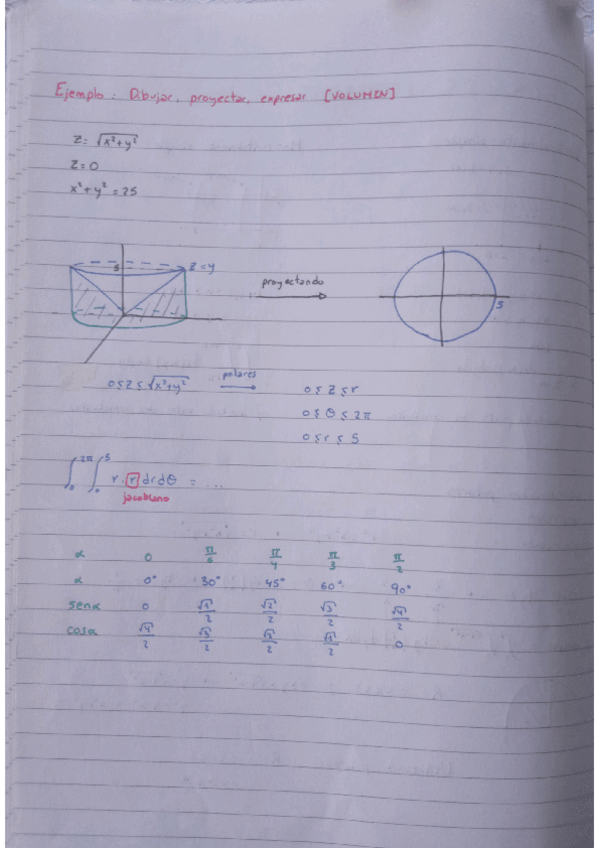 Ejemplo: Dibujar, proyectar, expresar [VOLUMEN]
z = √(x²+y²)
z = 0
x² + y² = 25
5 z = y
proyectando
5
0 ≤ z ≤ √(x²+y²) polares 0 ≤ z ≤ r
0 ≤ θ ≤ 2π
0 ≤ r ≤ 5
∫₀^2π ∫₀^5 r · r dr dθ = ...
jacobiano
α 0 π/6 π/4 π/3 π/2
α 0° 30° 45° 60° 90°
senα 0 √1/2 √2/2 √3/2 √4/2
cosα √4/2 √3/2 0